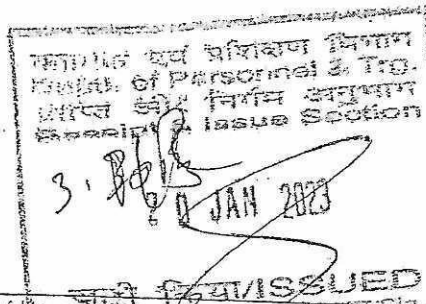 एवं प्रशिक्षण विभाग
of Personnel & Trg.
प्राप्ति और निर्गम अनुभाग
Receipt & Issue Section
3.
20 JAN 2023
जारी किया/ISSUED